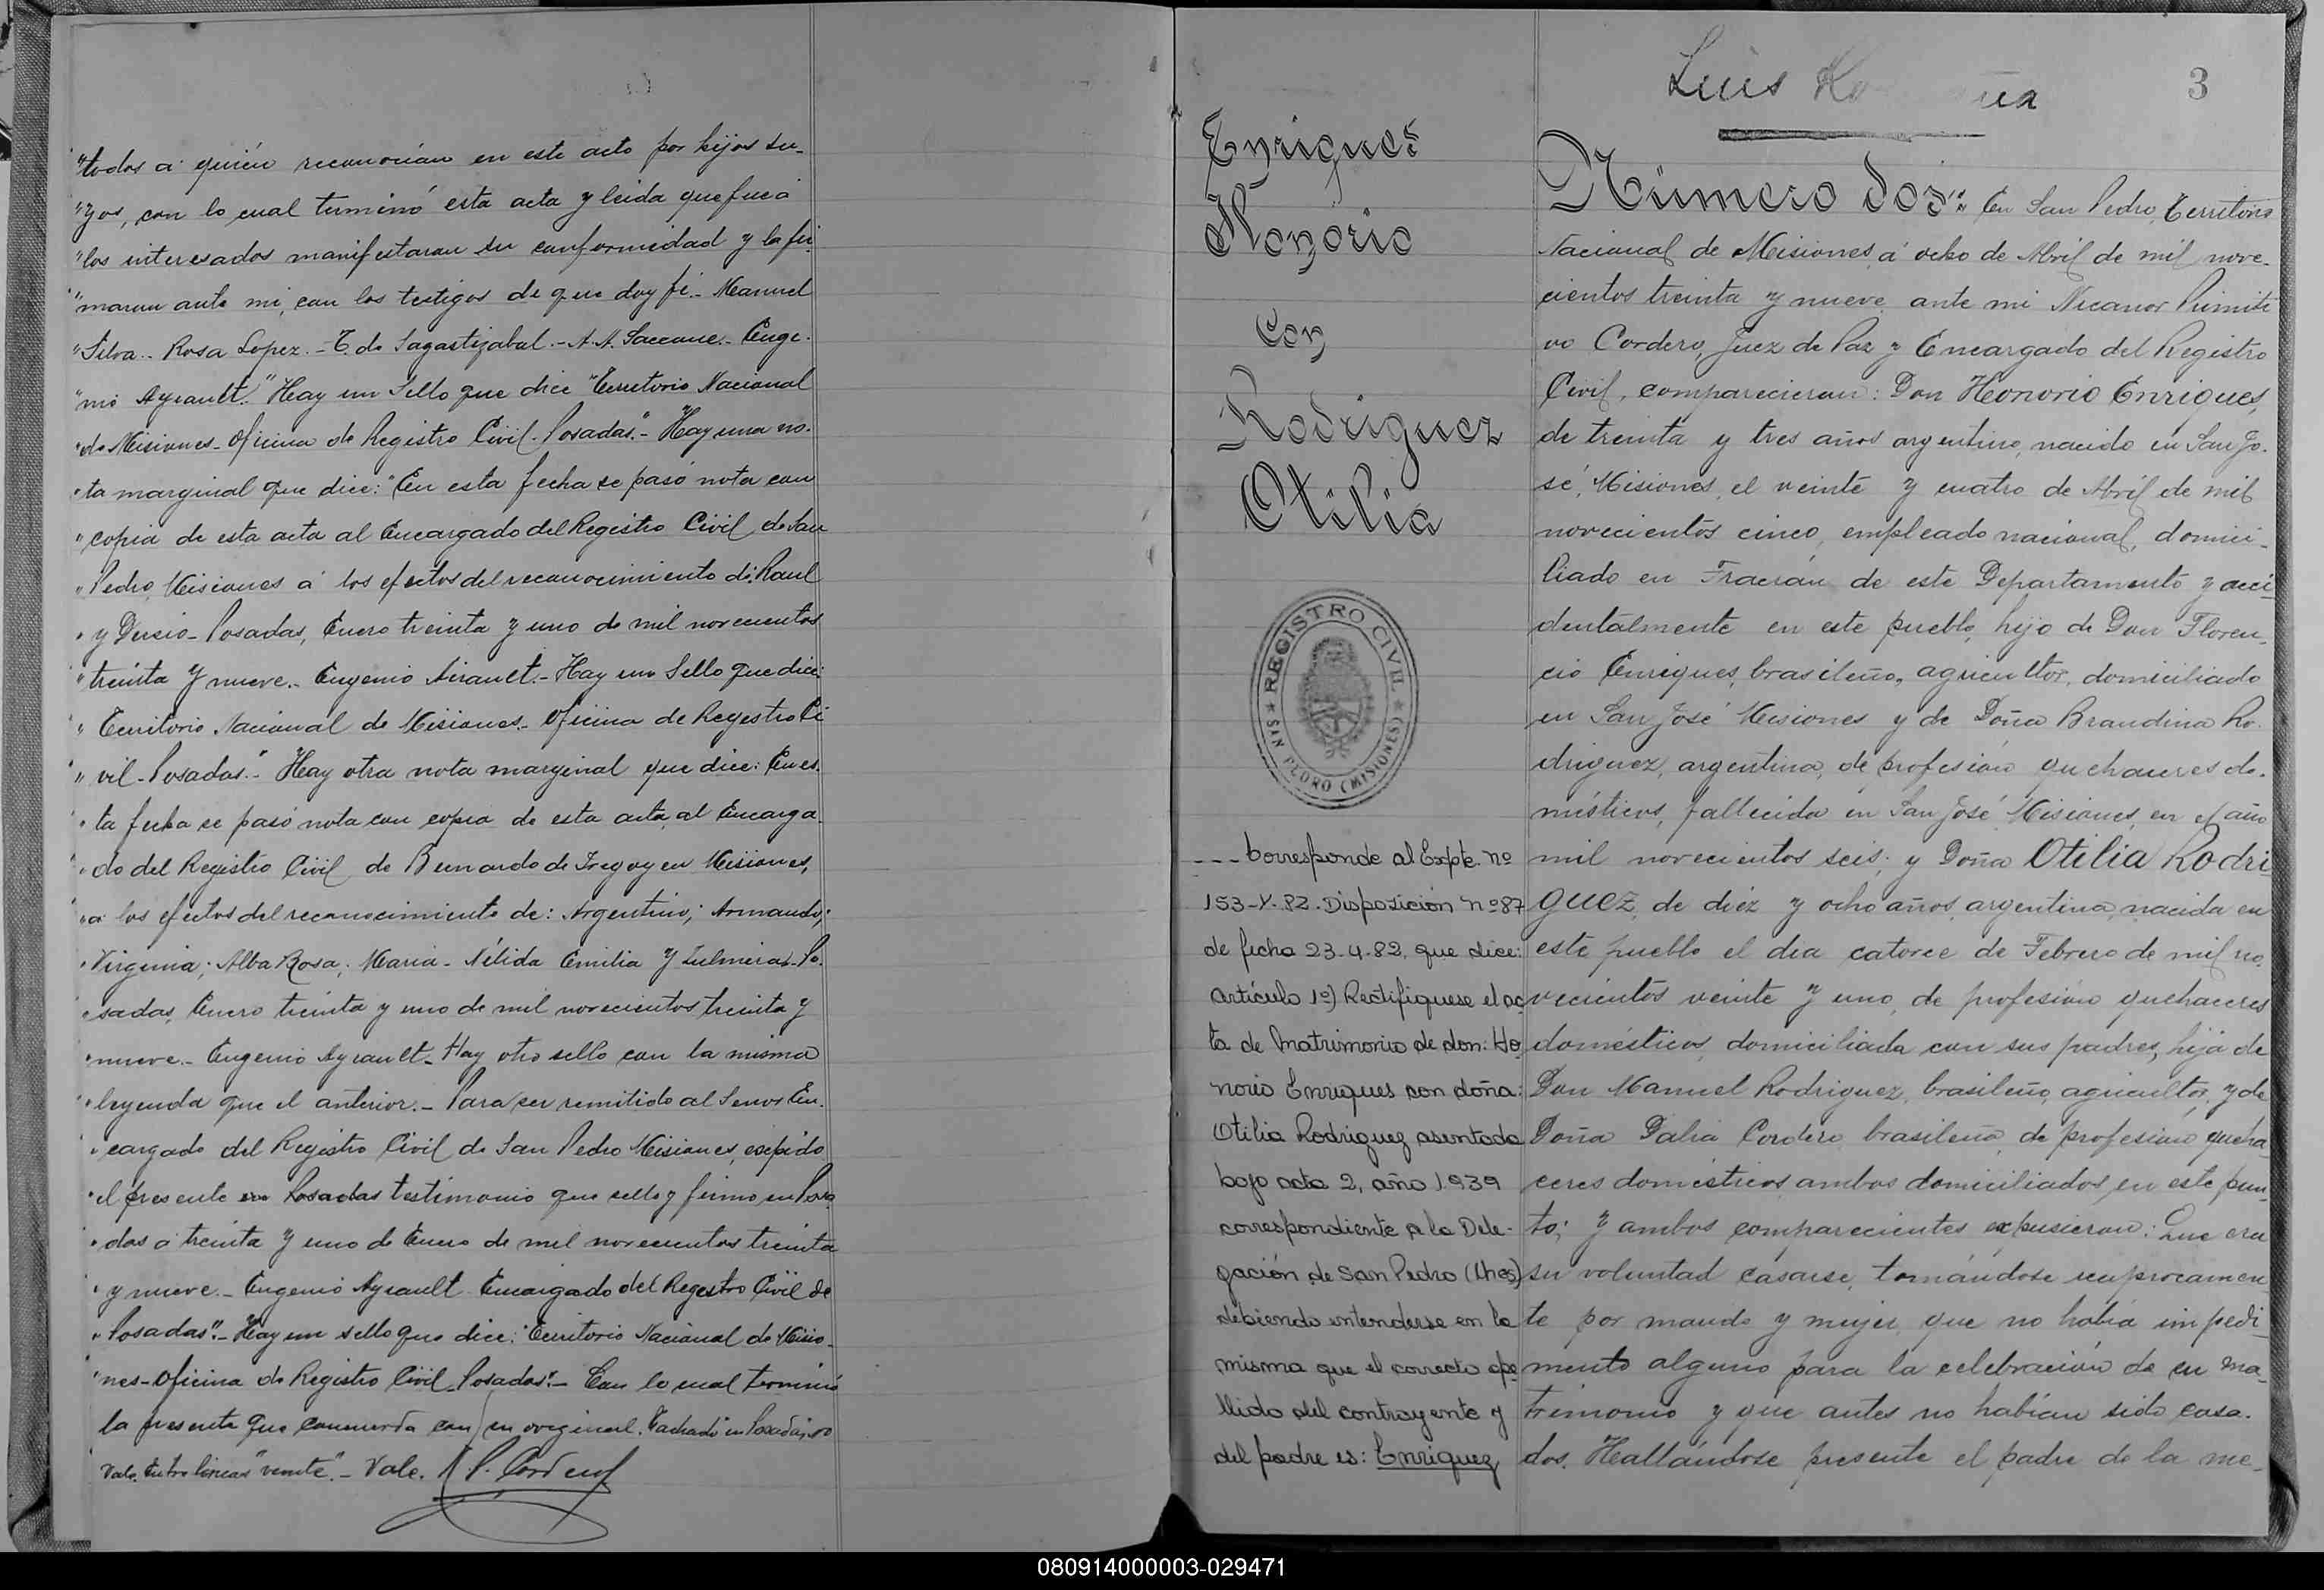 "todos a quién reconocían en este acto por hijos su-
"yos, con lo cual terminó esta acta y leida que fué á
"los interesados manifestaron su conformidad y la fir
"maron ante mi, con los testigos de que doy fé.- Manuel
"Silva.- Rosa Lopez.- T. de Sagastizabal.- A. A. Saccone.- Euge-
"nio Ayrault." Hay un Sello que dice "Territorio Nacional
"de Misiones- Oficina de Registro Civil- Posadas".- Hay una no-
"ta marginal que dice: "En esta fecha se pasó nota con
"copia de esta acta al Encargado del Registro Civil de San
"Pedro, Misiones á los efectos del reconocimiento de: Raul
"y Delsio- Posadas, Enero treinta y uno de mil novecientos
"treinta y nueve.- Eugenio Airault.- Hay un Sello que dice:
"Territorio Nacional de Misiones.- Oficina de Registro Ci
"vil- Posadas".- Hay otra nota marginal que dice: En es-
"ta fecha se pasó nota con copia de esta acta, al Encarga-
"do del Registro Civil de Bernardo de Irogoyen Misiones,
"a los efectos del reconocimiento de: Argentino; Armando;
"Virginia; Alba Rosa; Maria- Nélida Emilia y Zulmira- Po-
"sadas, Enero treinta y uno de mil novecientos treinta y
"nueve.- Eugenio Ayrault- Hay otro sello con la misma
"leyenda que el anterior.- Para ser remitido al Señor En-
"cargado del Registro Civil de San Pedro Misiones, expido
"el presente en Posadas testimonio que sello y firmo en Posa
"das a treinta y uno de Enero de mil novecientos treinta
"y nueve.- Eugenio Ayrault- Encargado del Registro Civil de
"Posadas".- Hay un sello que dice: "Territorio Nacional de Misio-
"nes- Oficina de Registro Civil- Posadas".- Con lo cual terminó
la presente que concuerda con su original. Tachado "en Posadas" no
vale. Entre lineas "veinte".- Vale. N. P. Cordero
Luis
3
Enriques
Honorio
Con
Rodriguez
Otilia
REGISTRO CIVIL
★ SAN PEDRO (MISIONES) ★
--- Corresponde al Expte. nº
153-Y-82. Disposición nº 87
de fecha 23-4-82, que dice:
Artículo 1º) Rectifiquese el ac
ta de Matrimonio de don: Ho
norio Enriques con doña:
Otilia Rodriguez asentada
bajo acta 2, año 1.939
correspondiente a la Dele-
gación de San Pedro (Mnes)
debiendo entenderse en la
misma que el correcto ape
llido del contrayente y
del padre es: Enriquez
Número dos". En San Pedro, Territorio
Nacional de Misiones á ocho de Abril de mil nove-
cientos treinta y nueve, ante mi Nicanor Primiti
vo Cordero, Juez de Paz y Encargado del Registro
Civil, comparecieron: Don Honorio Enriques,
de treinta y tres años, argentino, nacido en San Jo-
sé, Misiones, el veinte y cuatro de Abril de mil
novecientos cinco, empleado nacional, domici-
liado en Fracrán de este Departamento y acci-
dentalmente en este pueblo, hijo de Don Floren-
cio Enriques, brasileño, agricultor, domiciliado
en San José Misiones y de Doña Brandina Ro-
driguez, argentina, de profesión quehaceres do-
mésticos, fallecida en San José, Misiones, en el año
mil novecientos seis; y Doña Otilia Rodri
guez, de diéz y ocho años, argentina, nacida en
este pueblo el dia catorce de Febrero de mil no-
vecientos veinte y uno, de profesión quehaceres
domésticos, domiciliada con sus padres, hija de
Don Manuel Rodriguez, brasileño, agricultor, y de
Doña Dalia Cordero, brasileña, de profesión queha-
ceres domésticos, ambos domiciliados en este pun-
to; y ambos comparecientes expusieron: Que era
su voluntad casarse, tomándose reciprocamen-
te por marido y mujer, que no había impedi-
mento alguno para la celebración de su ma-
trimonio y que antes no habían sido casa-
dos. Hallándose presente el padre de la me-
080914000003-029471